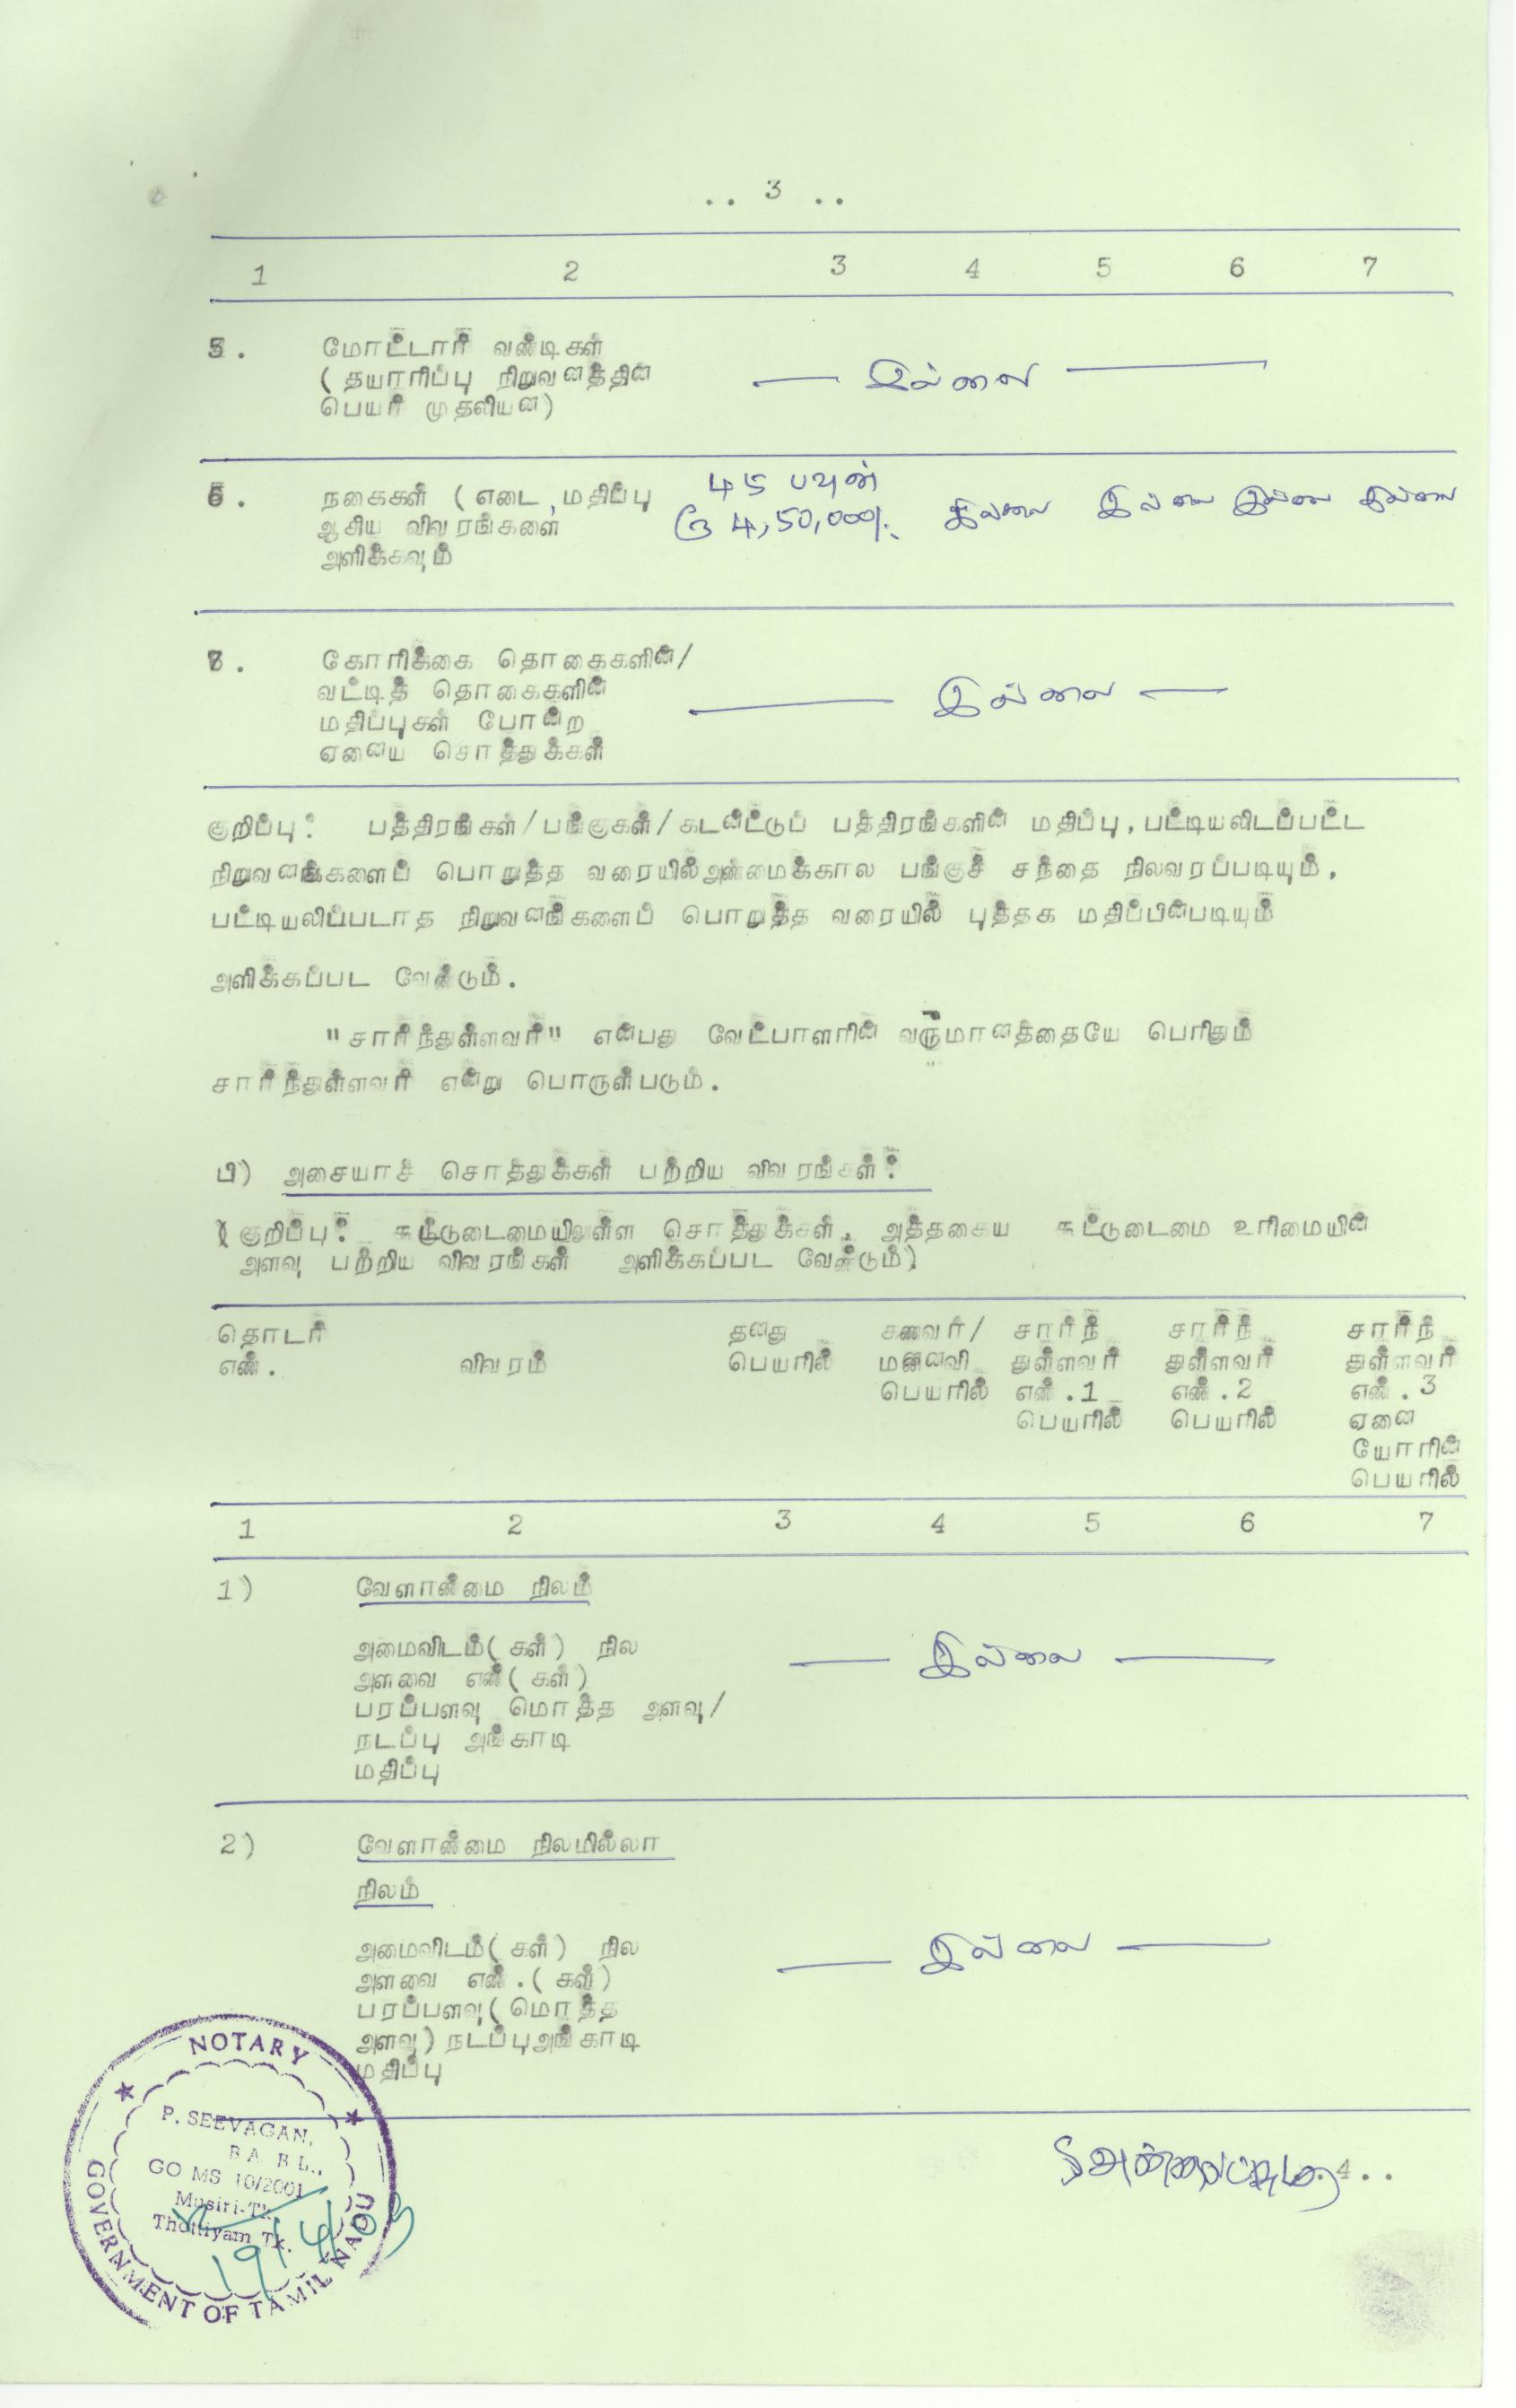 .. 3 ..
1 2 3 4 5 6 7
5. மோட்டார் வண்டிகள்
(தயாரிப்பு நிறுவனத்தின்
பெயர் முதலியன)
— இல்லை —
6. நகைகள் (எடை, மதிப்பு
ஆகிய விவரங்களை
அளிக்கவும்
45 பவுன்
ரூ 4,50,000/- இல்லை இல்லை இல்லை இல்லை
7. கோரிக்கை தொகைகளின்/
வட்டித் தொகைகளின்
மதிப்புகள் போன்ற
ஏனைய சொத்துக்கள்
— இல்லை —
குறிப்பு: பத்திரங்கள்/பங்குகள்/கடனீட்டுப் பத்திரங்களின் மதிப்பு, பட்டியலிடப்பட்ட
நிறுவனங்களைப் பொறுத்த வரையில் அண்மைக்கால பங்குச் சந்தை நிலவரப்படியும்,
பட்டியலிப்படாத நிறுவனங்களைப் பொறுத்த வரையில் புத்தக மதிப்பின்படியும்
அளிக்கப்பட வேண்டும்.
"சார்ந்துள்ளவர்" என்பது வேட்பாளரின் வருமானத்தையே பெரிதும்
சார்ந்துள்ளவர் என்று பொருள்படும்.
பி) அசையாச் சொத்துக்கள் பற்றிய விவரங்கள்:
(குறிப்பு: கூட்டுடைமையிலுள்ள சொத்துக்கள், அத்தகைய கூட்டுடைமை உரிமையின்
அளவு பற்றிய விவரங்கள் அளிக்கப்பட வேண்டும்)
தொடர் தனது கணவர்/ சார்ந் சார்ந் சார்ந்
எண். விவரம் பெயரில் மனைவி துள்ளவர் துள்ளவர் துள்ளவர்
பெயரில் எண்.1 எண்.2 எண்.3
பெயரில் பெயரில் ஏனை
யோரின்
பெயரில்
1 2 3 4 5 6 7
1) வேளாண்மை நிலம்
அமைவிடம்(கள்) நில
அளவை எண்(கள்)
பரப்பளவு மொத்த அளவு/
நடப்பு அங்காடி
மதிப்பு
— இல்லை —
2) வேளாண்மை நிலமில்லா
நிலம்
அமைவிடம்(கள்) நில
அளவை எண்.(கள்)
பரப்பளவு(மொத்த
அளவு)நடப்புஅங்காடி
மதிப்பு
— இல்லை —
4..
NOTARY
P. SEEVAGAN,
B.A. B.L.,
GO MS 10/2001
Musiri-Tk.
Thottiyam Tk.
GOVERNMENT OF TAMIL NADU
19/4/03